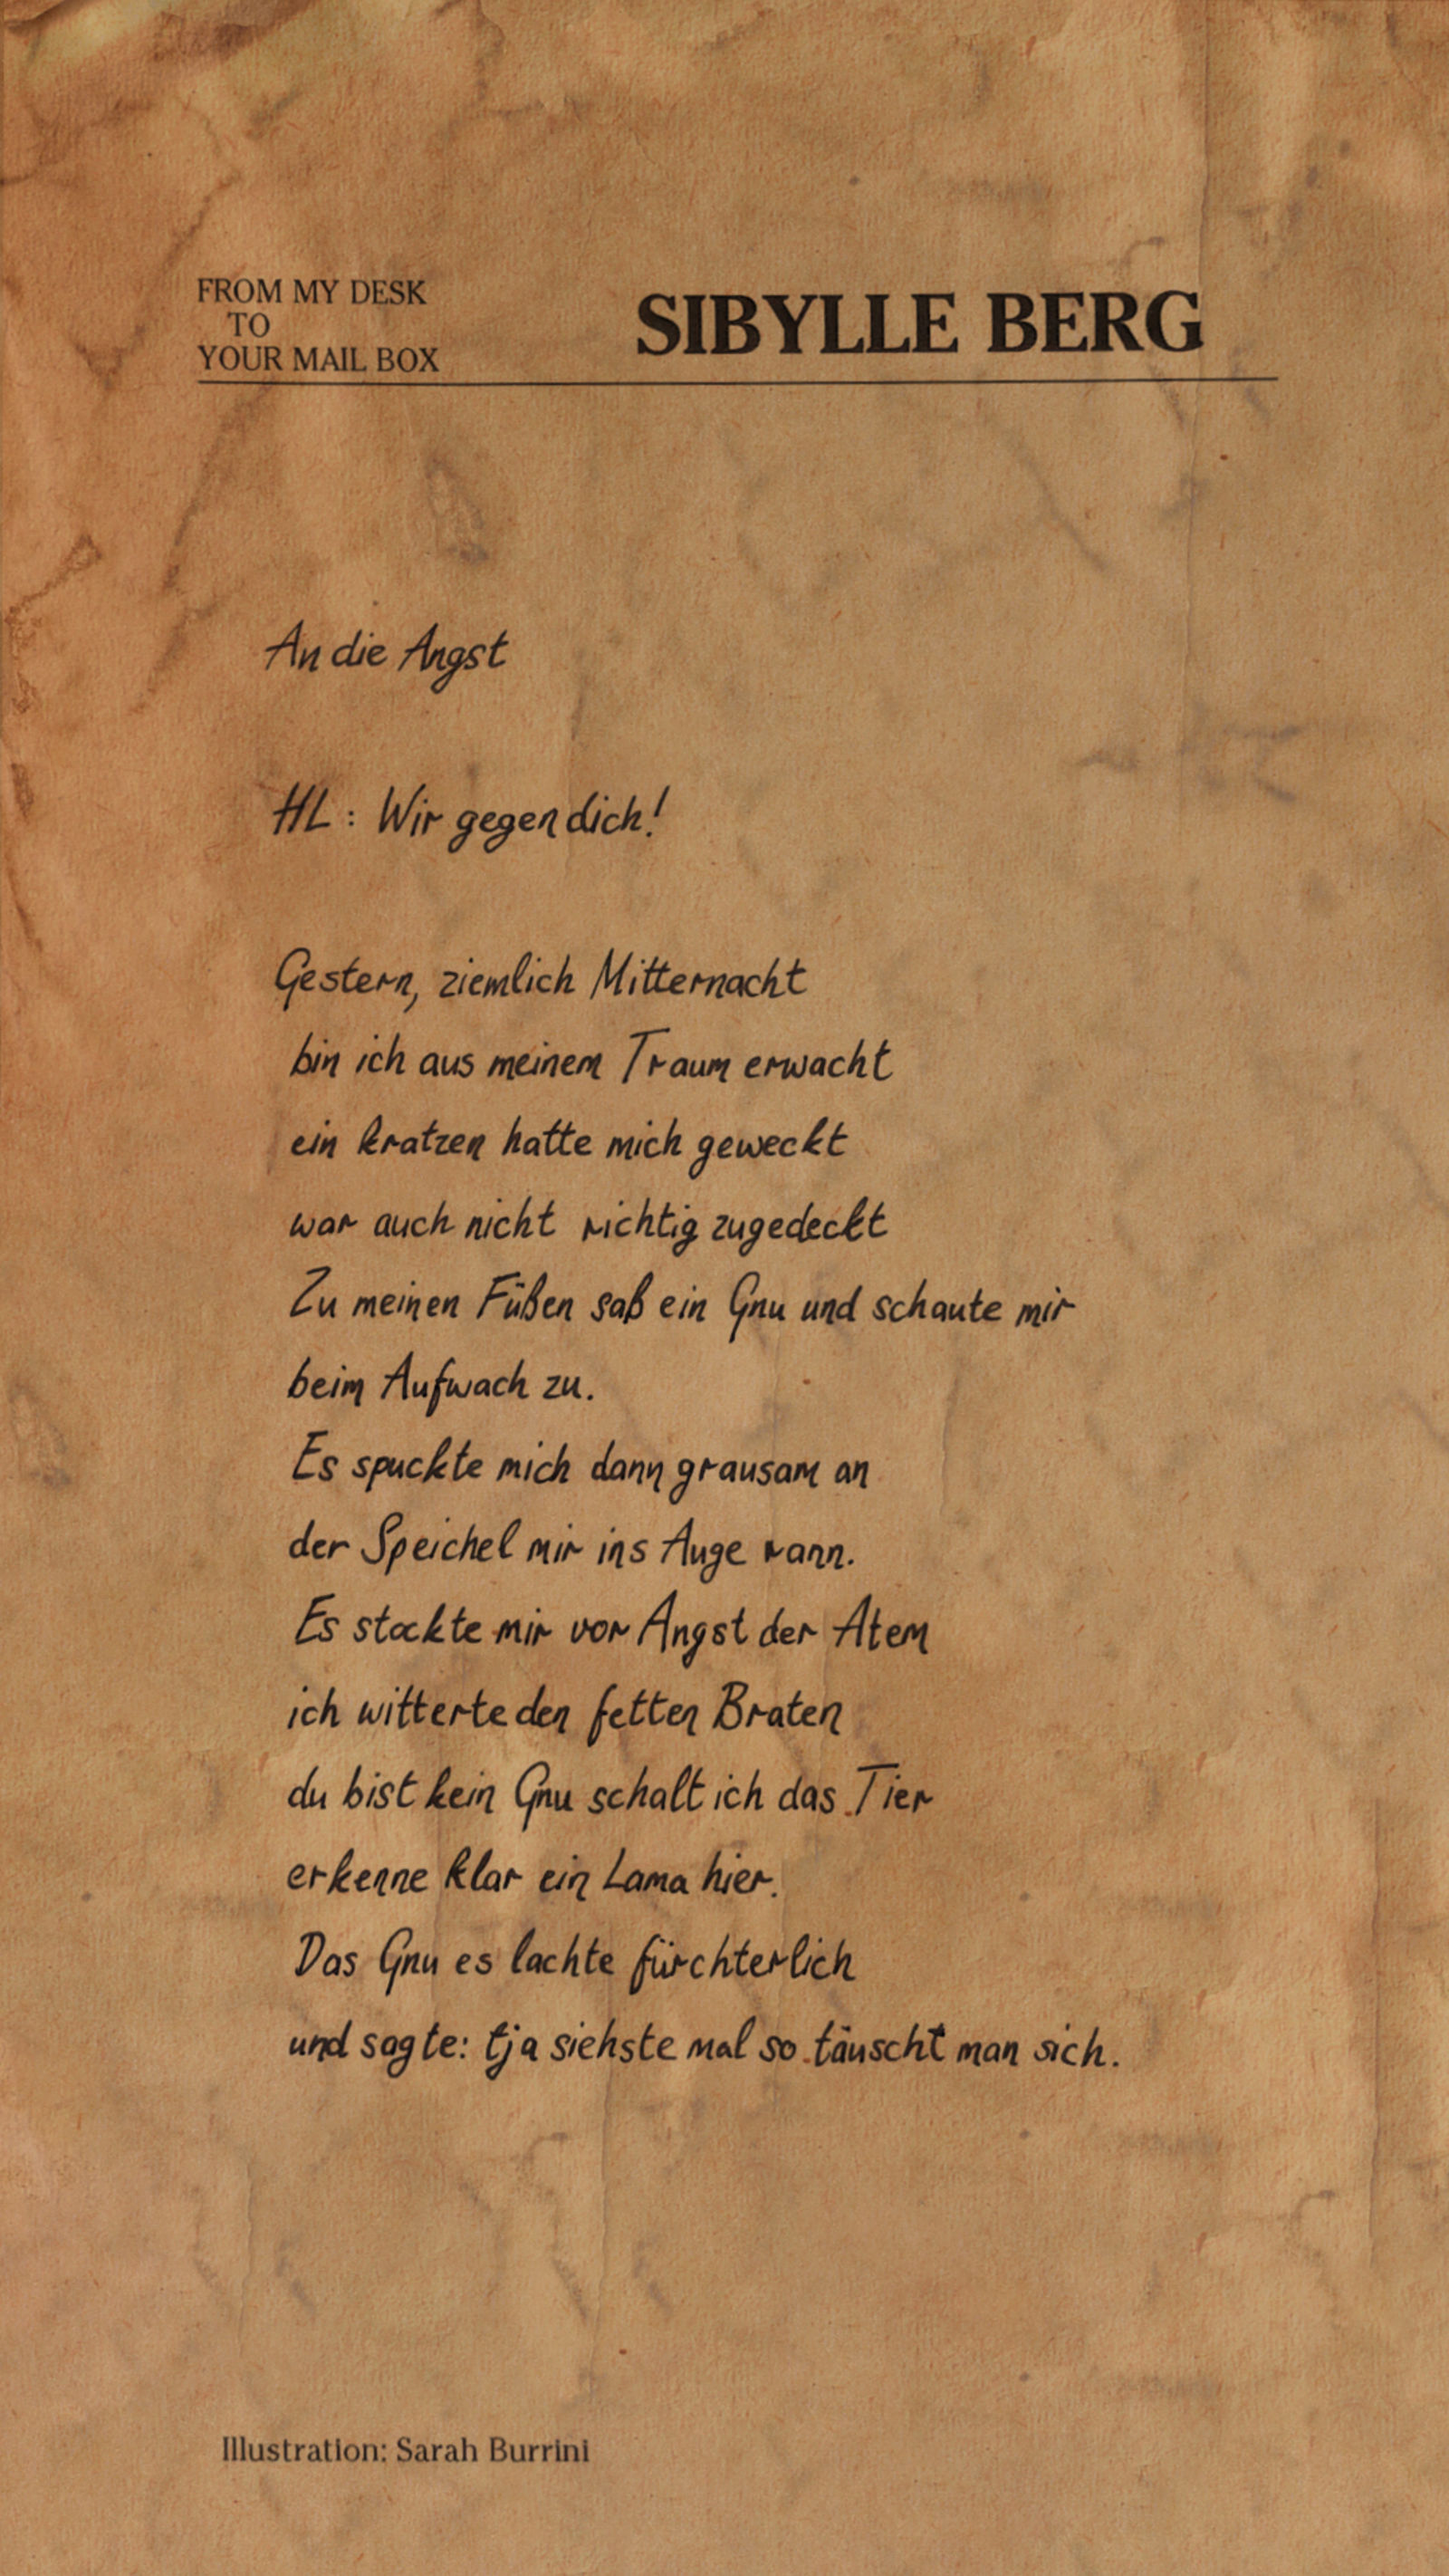 FROM MY DESK
TO
YOUR MAIL BOX
SIBYLLE BERG
An die Angst
HL: Wir gegen dich!
Gestern, ziemlich Mitternacht
bin ich aus meinem Traum erwacht
ein kratzen hatte mich geweckt
war auch nicht richtig zugedeckt
Zu meinen Füßen saß ein Gnu und schaute mir
beim Aufwach zu.
Es spuckte mich dann grausam an
der Speichel mir ins Auge rann.
Es stockte mir vor Angst der Atem
ich witterte den fetten Braten
du bist kein Gnu schalt ich das Tier
erkenne klar ein Lama hier.
Das Gnu es lachte fürchterlich
und sagte: tja siehste mal so täuscht man sich.
Illustration: Sarah Burrini